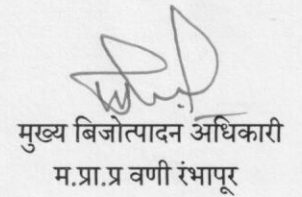 मुख्य बिजोत्पादन अधिकारी
म.प्रा.प्र वणी रंभापूर